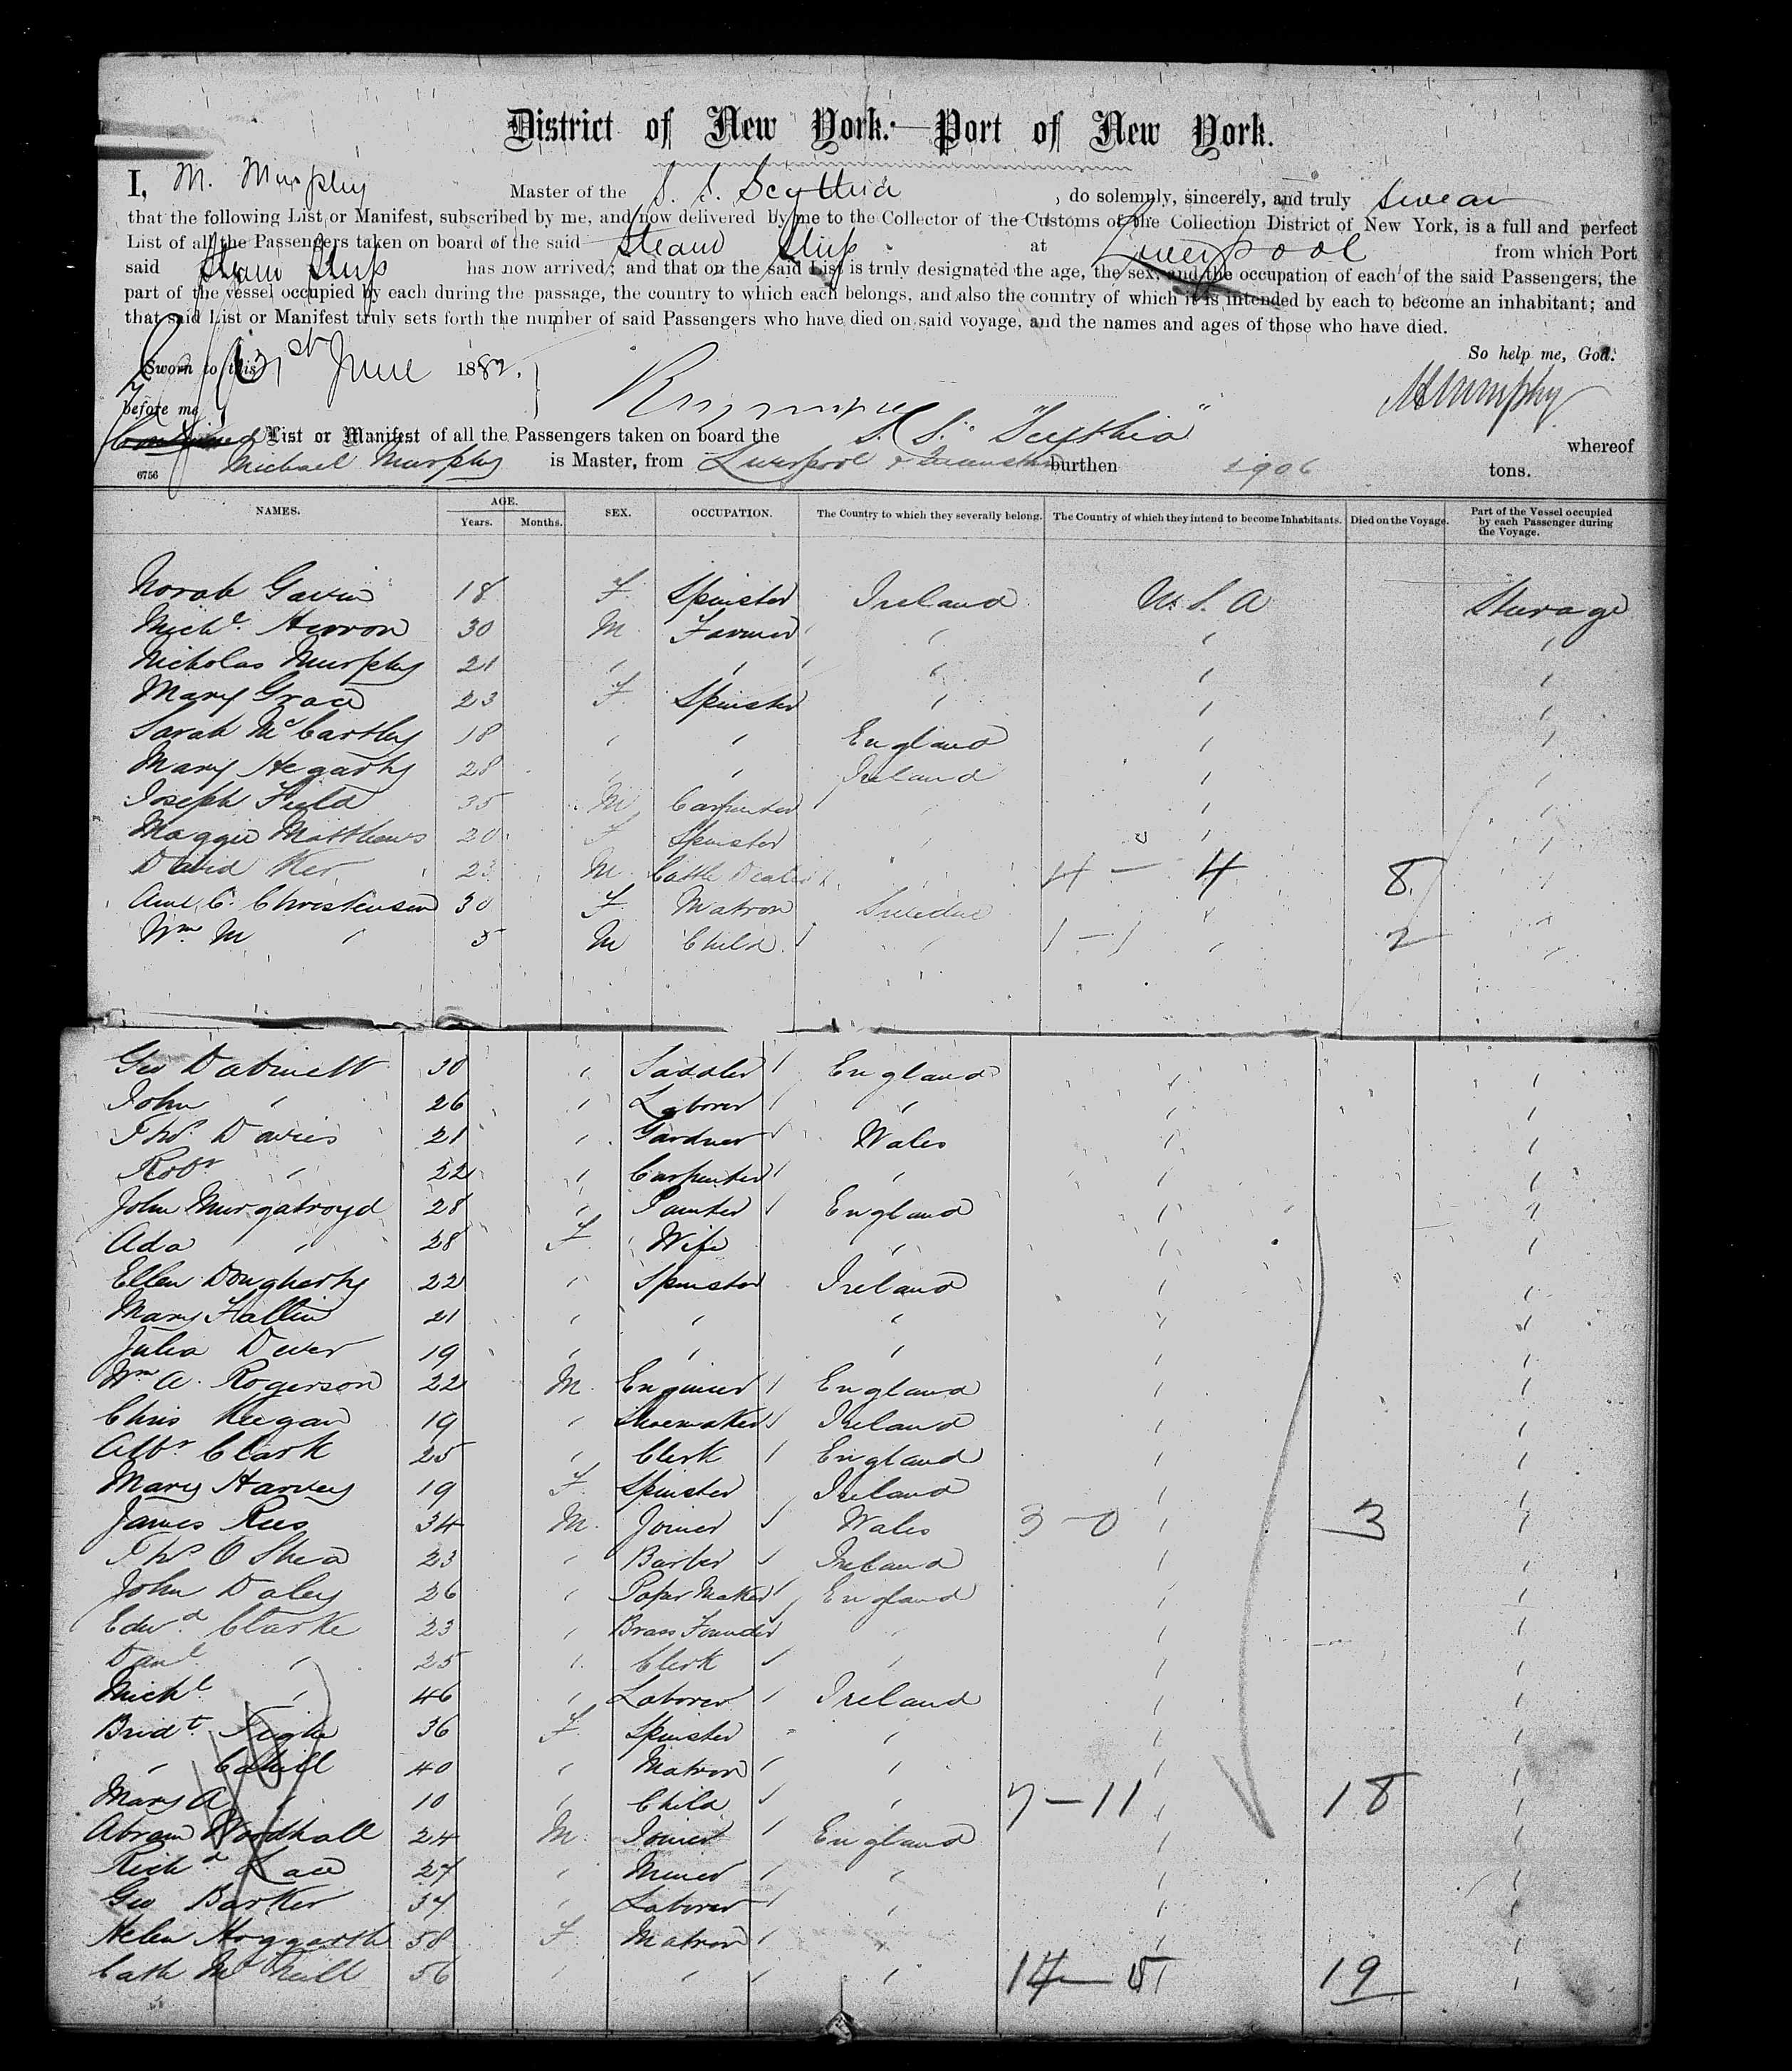 District of New York.—Port of New York.
I, M. Murphy Master of the S. S. Scythia , do solemnly, sincerely, and truly swear
that the following List or Manifest, subscribed by me, and now delivered by me to the Collector of the Customs of the Collection District of New York, is a full and perfect
List of all the Passengers taken on board of the said Steam Ship at Liverpool from which Port
said Steam Ship has now arrived; and that on the said List is truly designated the age, the sex, and the occupation of each of the said Passengers, the
part of the vessel occupied by each during the passage, the country to which each belongs, and also the country of which it is intended by each to become an inhabitant; and
that said List or Manifest truly sets forth the number of said Passengers who have died on said voyage, and the names and ages of those who have died.
So help me, God.
Sworn to this 1st June 1882.
before me M Murphy
List or Manifest of all the Passengers taken on board the S. S. "Scythia" whereof
Michael Murphy is Master, from Liverpool & burthen 2906 tons.
6756
NAMES. AGE. Years. Months. SEX. OCCUPATION. The Country to which they severally belong. The Country of which they intend to become Inhabitants. Died on the Voyage. Part of the Vessel occupied by each Passenger during the Voyage.
Norah Gavin 18 F. Spinster Ireland U. S. A Steerage
Michl. Herron 30 M. Farmer " " "
Nicholas Murphy 21 " " " " "
Mary Grace 23 F. Spinster " " "
Sarah McCarthy 18 " " England " "
Mary Hegarty 28 " " Ireland " "
Joseph Field 35 M Carpenter " " "
Maggie Matthews 20 F Spinster " " "
David Ker 23 M. Cattle Dealer " 4 — 4 8 "
Ane C. Christensen 30 F. Matron Sweden " "
Wm M " 5 M Child " 1 — 1 " 2 "
Geo Dabinett 30 " Saddler England " "
John " 26 " Laborer " " "
Thos. Davies 21 " Gardner Wales " "
Robt " 22 " Carpenter " " "
John Murgatroyd 28 " Painter England " "
Ada " 28 F. Wife " " "
Ellen Dougherty 22 " Spinster Ireland " "
Mary Fallin 21 " " " " "
Julia Dever 19 " " " " "
Wm A. Rogerson 22 M. Engineer England " "
Chris Keegan 19 " Shoemaker Ireland " "
Albt Clark 25 " Clerk England " "
Mary Harvey 19 F. Spinster Ireland " "
James Rees 34 M. Joiner Wales 3 — 0 " 3 "
Thos. O Shea 23 " Barber Ireland " "
John Daley 26 " Paper Maker England " "
Edwd. Clarke 23 " Brass Founder " " "
Danl " 25 " Clerk " " "
Michl. " 46 " Laborer Ireland " "
Bridt. Tighe 36 F. Spinster " " "
" Cahill 40 " Matron " " "
Mary A " 10 " Child " 7 — 11 " 18 "
Abram Woodhall 24 M. Joiner England " "
Richd Law 27 " Miner " " "
Geo Barker 37 " Laborer " " "
Helen Hoggarth 58 F. Matron " " "
Cath McNeill 56 " " " 14 — 5 19 "